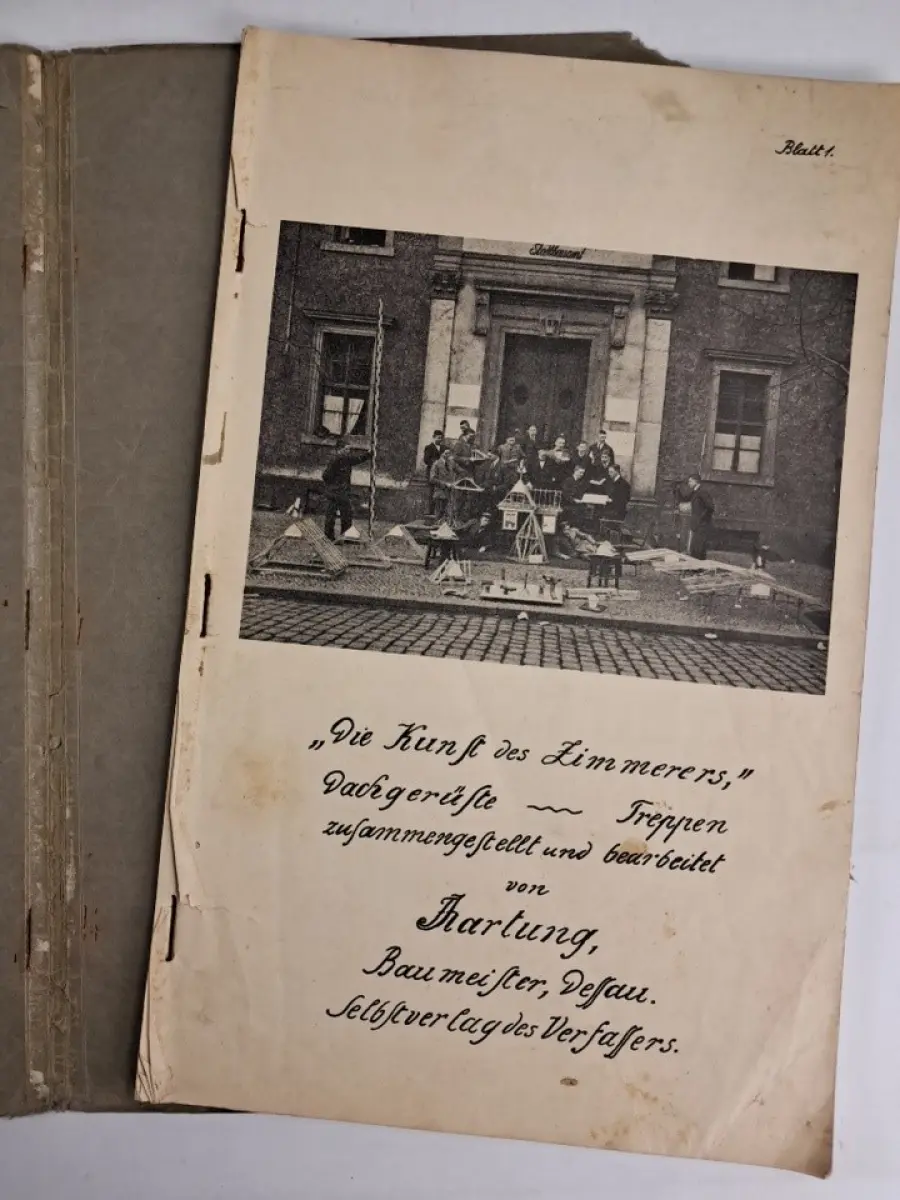 Blatt 1.
„Die Kunſt des Zimmerers,“
Dachgerüſte ~ Treppen
zuſammengeſtellt und bearbeitet
von
Hartung,
Baumeiſter, Deſſau.
Selbſtverlag des Verfaſſers.